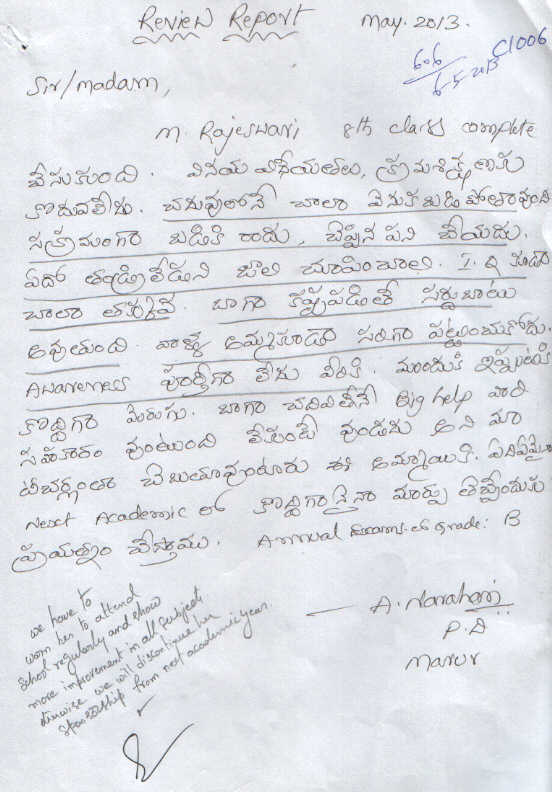 Review Report May. 2013.
C1006
606
6-5-2013
Sir/madam,
M. Rajeswari 8th class complete
చేసుకుంది. వినయ విధేయతలు, క్రమశిక్షణలకు
కొదువలేదు. చదువులోనే చాలా వెనుకబడి పోతూవుంది
సక్రమంగా బడికి రాదు, చెప్పిన పని చేయదు.
ఏదో తండ్రిలేడని జాలి చూపించాలి. I.Q కూడా
చాలా తక్కువే. బాగా కష్టపడితే సర్దుబాటు
అవుతుంది. వాళ్ళ అమ్మకూడా సరిగా పట్టించుకోదు.
Awareness పూర్తిగా లేదు వీరికి. ముందుకి ఇప్పటికి
కొద్దిగా మెరుగు. బాగా చదివితేనే Big help వారి
సహకారం వుంటుంది లేకుంటే వుండదు అని మా
టీచర్లంతా చెబుతూవుంటారు ఈ అమ్మాయికి. ఏదిఏమైనా
Next Academic లో కొద్దిగానైనా మార్పు తెచ్చేందుకు
ప్రయత్నం చేస్తాము. Annual Exams లో Grade: B
A. Narahari
P.D
Marur
we have to
warn her to attend
school regularly and show
more improvement in all subjects
otherwise we will discontinue her
sponsorship from next academic year.